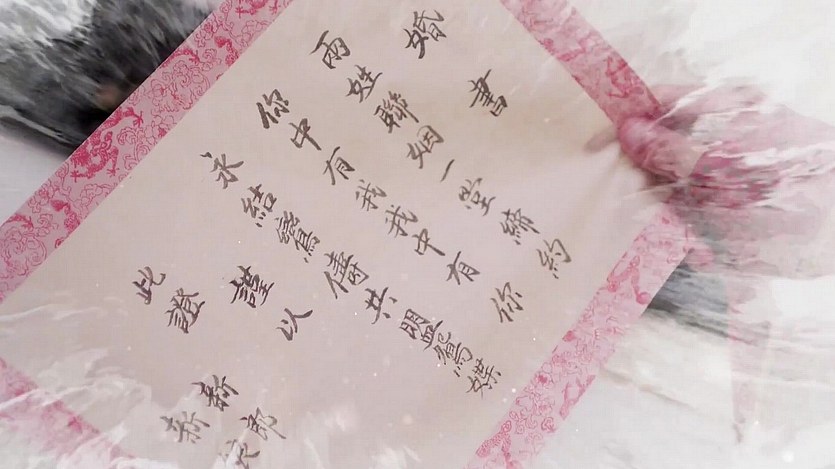 婚書
兩姓聯姻一堂締約
你中有我我中有你
永結鸞儔共盟鴛蝶
謹以
此證
新郎
新